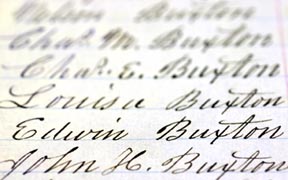 Buxton
Chas. M. Buxton
Chas. E. Buxton
Louisa Buxton
Edwin Buxton
John H. Buxton